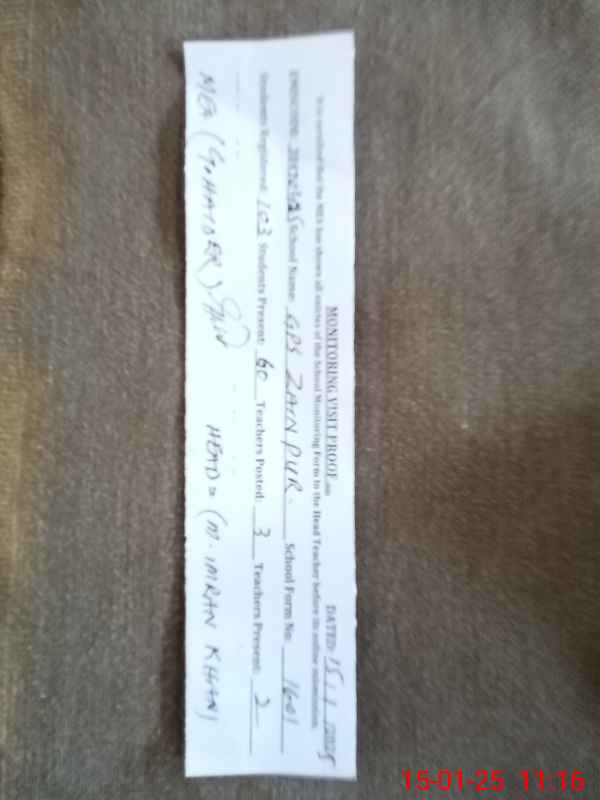 MONITORING VISIT PROOF DATED: 15/1/2025
It is certified that the MEA has shown all entries of the School Monitoring Form to the Head Teacher before its online submission.
School Name: GPS ZAINPUR. School Form No: 1601
Students Registered: 103 Students Present: 60 Teachers Posted: 3 Teachers Present: 2
MEA (G. HAIDER) HEAD = (M. IMRAN KHAN)
15-01-25 11:16